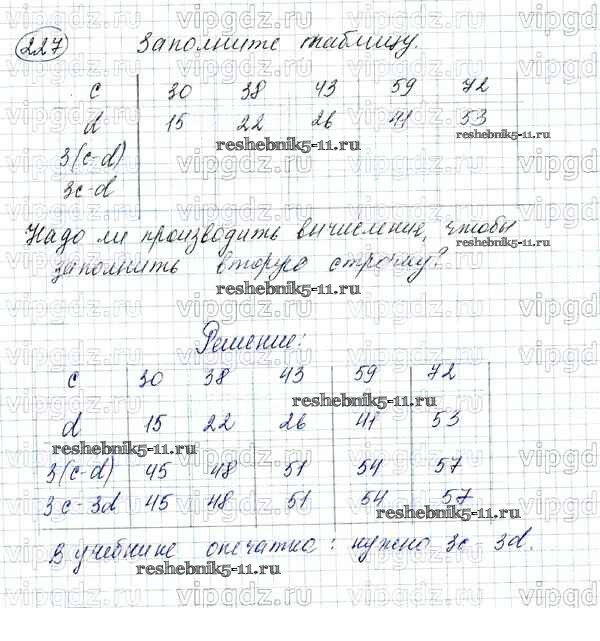 227 Заполните таблицу.
c 30 38 43 59 72
d 15 22 26 41 53
3(c-d)
3c-d
reshebnik5-11.ru reshebnik5-11.ru
Надо ли производить вычисления, чтобы
заполнить вторую строчку?
reshebnik5-11.ru reshebnik5-11.ru
Решение:
c 30 38 43 59 72
reshebnik5-11.ru
d 15 22 26 41 53
reshebnik5-11.ru
3(c-d) 45 48 51 54 57
3c-3d 45 48 51 54 57
reshebnik5-11.ru
В учебнике опечатка: нужно 3c-3d.
reshebnik5-11.ru
vipgdz.ru